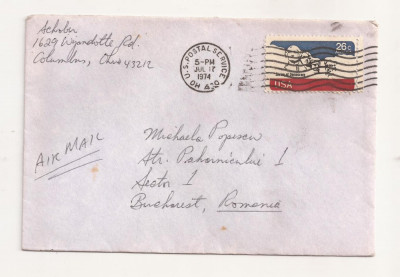 Schober
1629 Wyandotte Rd.
Columbus, Ohio 43212
U.S. POSTAL SERVICE
OH
5-PM
JUL 17
1974
26c
USA
AIR MAIL
Michaela Popescu
Str. Paharnicului 1
Sector 1
Bucharest, Romania